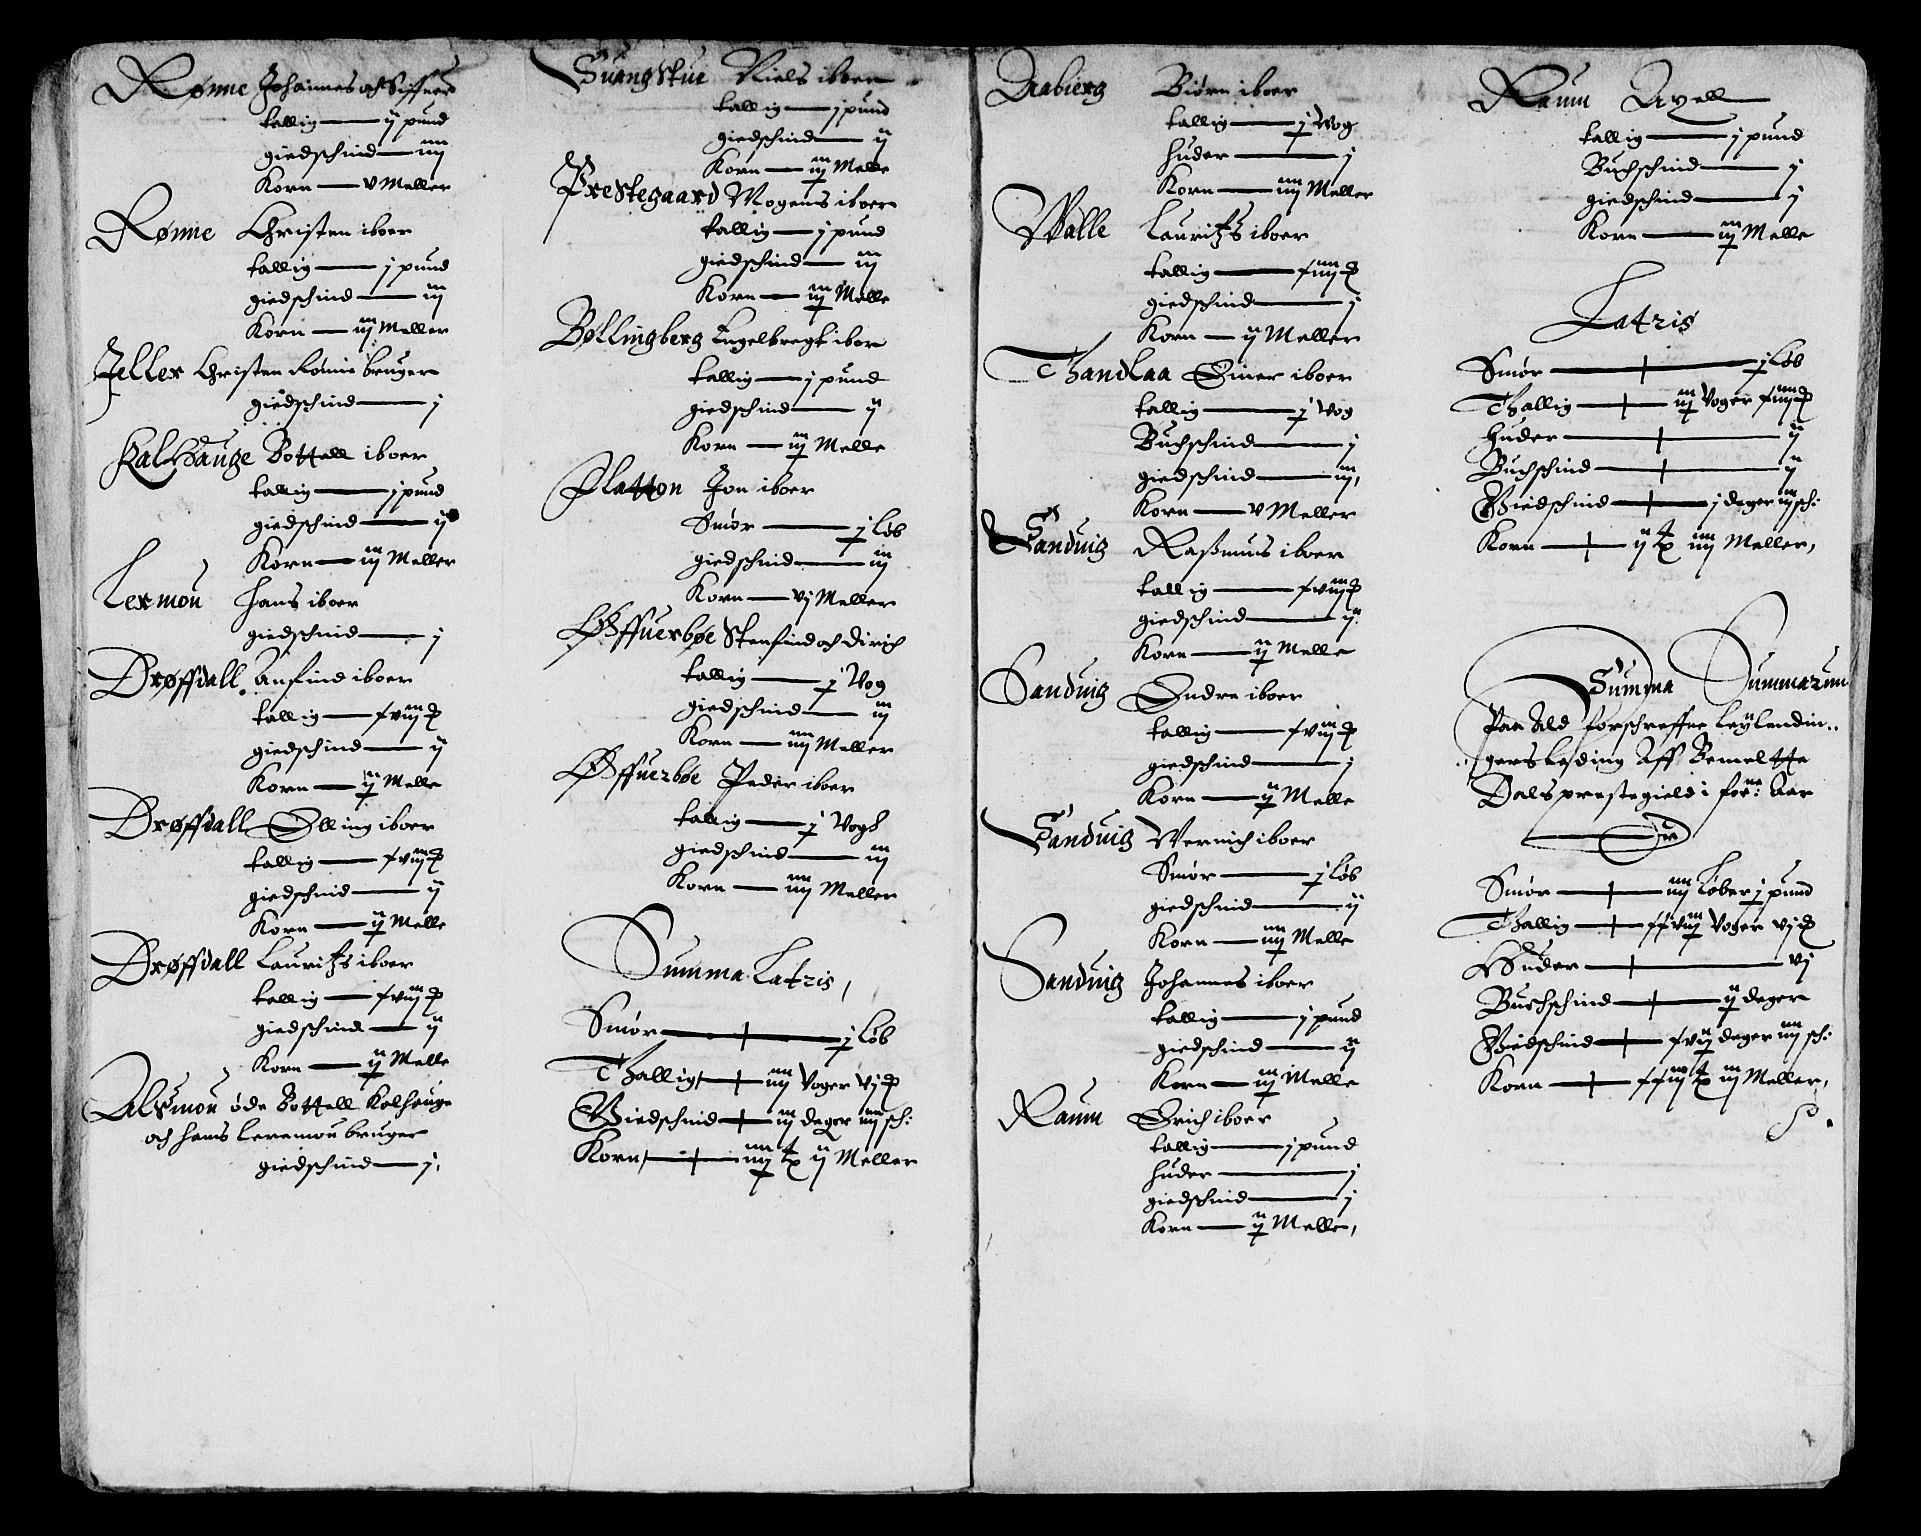 Rønne Johannes och Siffuerd
tallig — ij pund
giedschind — iiij
Korn — v Meller
Rønne Christen iboer
tallig — j pund
giedschind — iij
Korn — iiij Meller
Jeller Christen Rønne bruger
giedschind — j
Kalhauge Bottell iboer
tallig — j pund
giedschind — ij
Korn — iij Meller
Lermou hans iboer
giedschind — j
Drøffdall Anfind iboer
tallig — xviij
giedschind — ij
Korn — ij Melle
Drøffdall Olluig iboer
tallig — xviij
giedschind — ij
Korn — ij Melle
Drøffdall Lauritzs iboer
tallig — xviij
giedschind — ij
Korn — ij Melle
Alsmou øde Bottell Kalhauge
och hans Leremou bruger
giedschind — j,
Suangstue Niels iboer
tallig — j pund
giedschind — ij
Korn — iij Melle
Prestegaard Mogens iboer
tallig — j pund
giedschind — iij
Korn — iij Melle
Bøllingberg Engelbregt ibor
tallig — j pund
giedschind — ij
Korn — iij Melle
Platton Jon iboer
Smør — j Løb
giedschind — iij
Korn — vj Meller
Øffuerbøe Stenfind och Dirich
tallig — j Vog
giedschind — iij
Korn — iiij Meller
Øffuerbøe Peder iboer
tallig — j Vog
giedschind — iij
Korn — iiij Meller
Summa Latris,
Smør — j Løb
Thallig — iiij Voger vj
Giedschind — iij deger iiij sch:
Korn — iiij ij Meller
Aabierg Biørn iboer
tallig — j Vog
huder — j
Korn — iiij Meller
Walle Lauritzs iboer
tallig — xiiij
giedschind — j
Korn — ij Meller
Thandlaa Einer iboer
tallig — j Vog
Buchschind — j
giedschind — iij,
Korn — v Meller
Sanduig Rasmus iboer
tallig — xviij
giedschind — ij
Korn — ij Melle
Sanduig Endre iboer
tallig — xviij
giedschind — j
Korn — ij Melle
Sanduig Wernich iboer
Smør — j Løb
giedschind — ij
Korn — iiij Melle
Sanduig Johannes iboer
tallig — j pund
giedschind — ij
Korn — iij Melle
Raum Erich iboer
tallig — j pund
huder — j
giedschind — j
Korn — ij Melle,
Raum Axell
tallig — j pund
Buchschind — j
giedschind — j
Korn — iij Melle
Latris
Smør — j Løb
Thallig — iij Voger xiiij
Huder — ij
Buchschind — ij
Giedschind — j deger iij sch:
Korn — ij iiij Meller,
Summa Summarum
Paa Ald forschreffne Leylendin..
gers Leding Aff Bemeltte
Dals prestegield i forne: Aar
Er
Smør — iiij Løber j pund
Thallig — xxviij Voger vj
Huder — vj
Buchschind — ij deger
Giedschind — xvij deger iiij sch:
Korn — xxiij iij Meller,